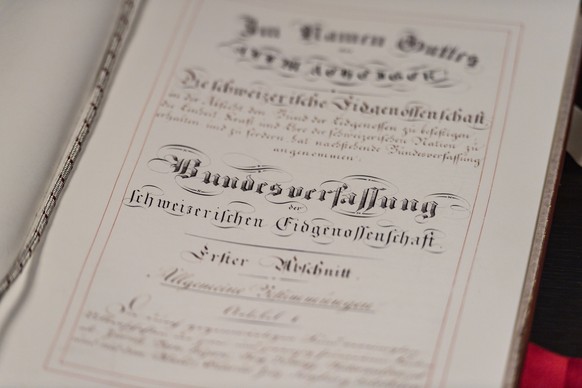 Im Namen Gottes
des
Allmächtigen
Die schweizerische Eidgenossenschaft,
in der Absicht, den Bund der Eidgenossen zu befestigen,
die Einheit, Kraft und Ehre der schweizerischen Nation zu
erhalten und zu fördern, hat nachstehende Bundesverfassung
angenommen:
Bundesverfassung
der
schweizerischen Eidgenossenschaft.
Erster Abschnitt.
Allgemeine Bestimmungen
Artikel 1